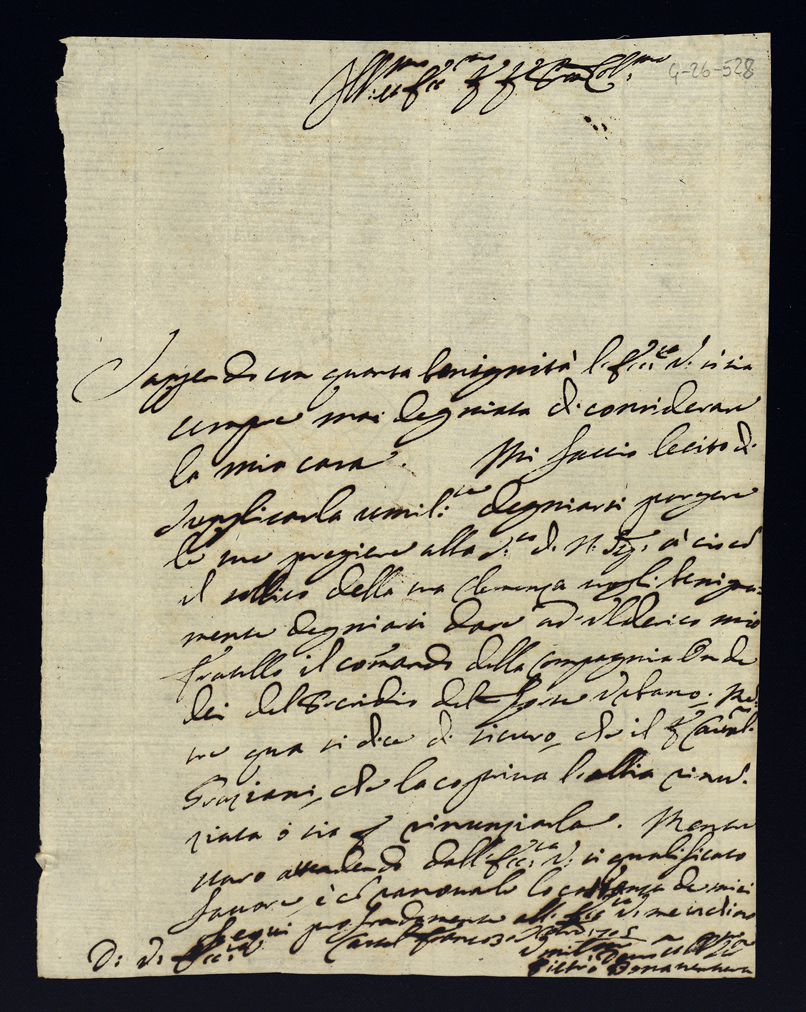 Ill.mo et Ecc.mo Sig.r Sig.r Pron Col.mo
G-26-528
Sapendo con quanta benignità l'Ecc.za V. si sia
sempre mai degniata di considerare
la mia casa. Mi faccio lecito di
supplicarla umil.te degniarsi porgere
le sue pregiere alla S.tà di N. Sig.
il solito della sua clemenza vogli benigna:
mente degniarsi dare ad Ulderico mio
fratello il comando della Compagnia
del Presidio del Forte Urbano. Men
tre qua si dice di sicuro, che il Sig.r
Graziani, che la copriva l'abbia rinun.
ziata o sia p rinunziarla. Mentre
staro attendendo dall'Ecc.za V. si qualificato
favore,
profondamente all' Ecc.za V. me inclino
D: V: Ecc.za
Castel Franco
Pietro Bonaventura